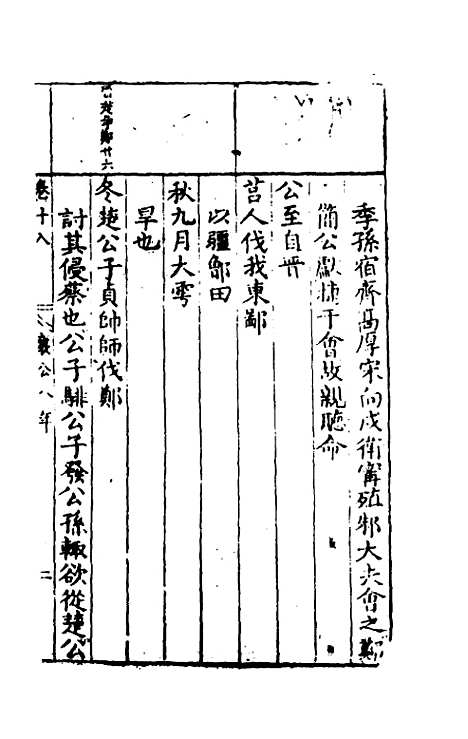 季孫宿齊高厚宋向戌衛甯殖邾大夫會之鄭
簡公獻捷于會故親聽命
公至自晉
莒人伐我東鄙
以疆鄫田
秋九月大雩
旱也
冬楚公子貞帥師伐鄭
討其侵蔡也公子騑公子發公孫輒欲從楚公
楚爭鄭廿六
卷十八 襄公八年 二